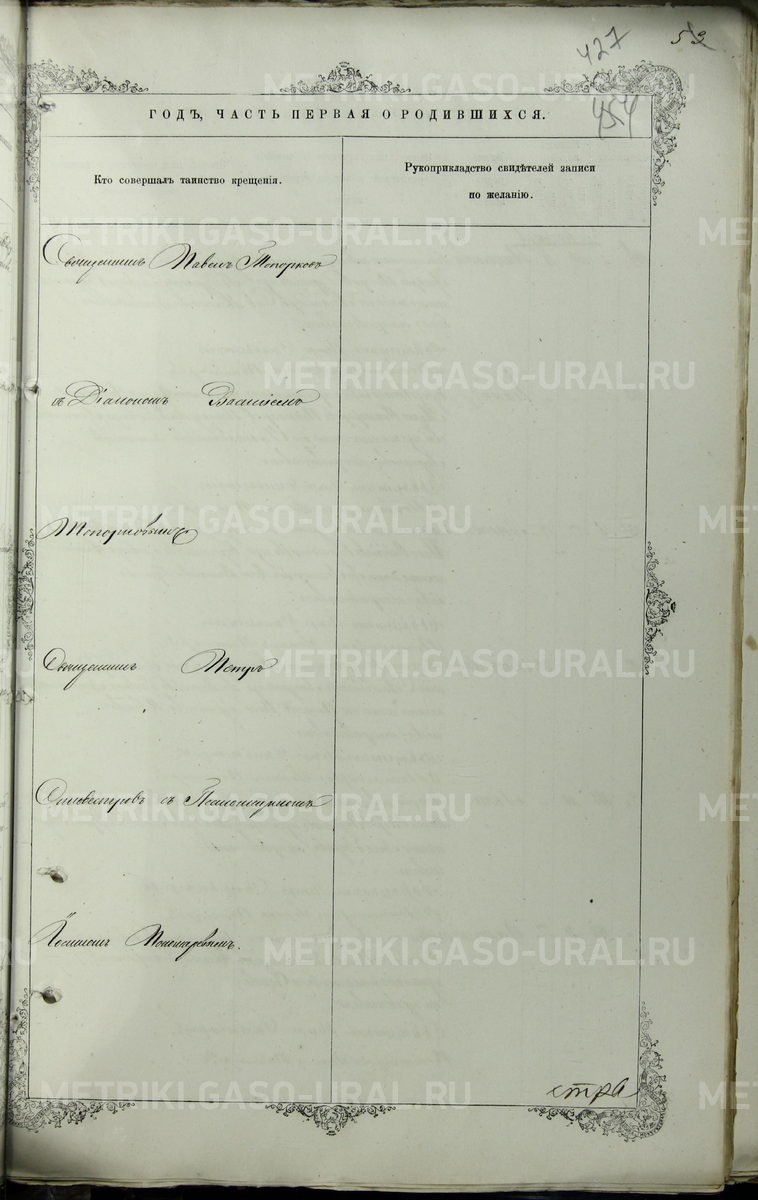 427
53
454
ГОДЪ, ЧАСТЬ ПЕРВАЯ О РОДИВШИХСЯ.
Кто совершалъ таинство крещенія.
Рукоприкладство свидѣтелей записи
по желанію.
METRIKI.GASO-URAL.RU
Священникъ Павелъ Топорковъ
съ Діакономъ Василіемъ
Топорковымъ
Священникъ Петръ
Сильвестровъ съ Псаломщикомъ
Пономаревымъ.
стра